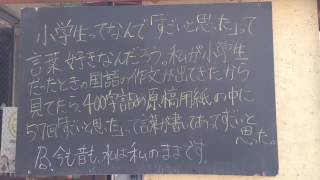 小学生ってなんで「すごいと思った」って
言葉好きなんだろう。私が小学生
だったときの国語の作文が出てきたから
見てたら、400字詰め原稿用紙の中に
57回「すごいと思った」って言葉が書いてあってすごいと
思った。
今も昔も、私は私のままです。